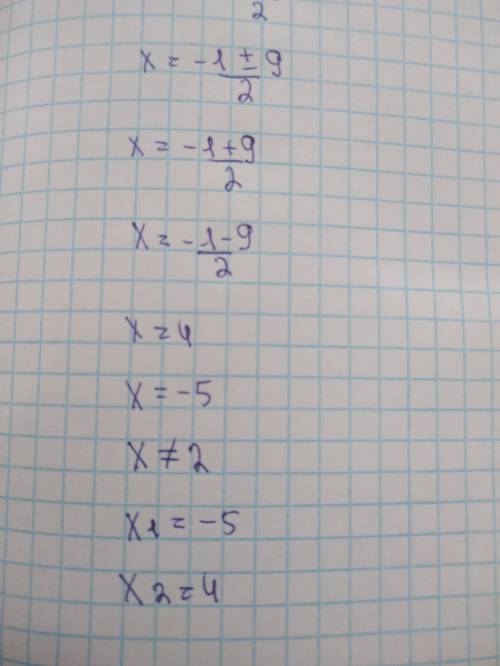 2
x = -1 ± 9
2
x = -1+9
2
x = -1-9
2
x = 4
x = -5
x ≠ 2
x1 = -5
x2 = 4